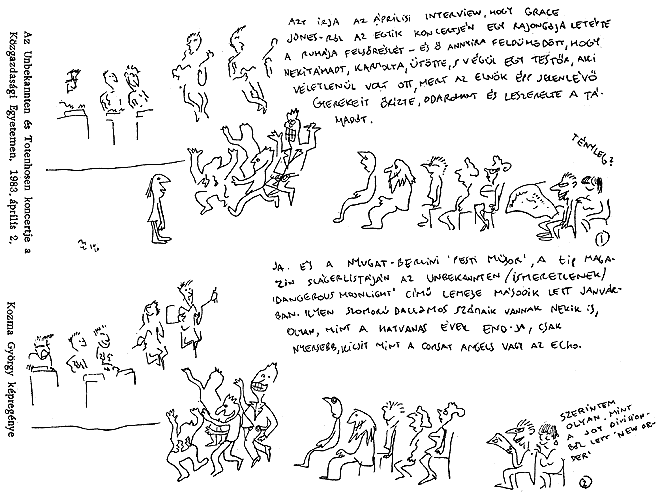 Az Unbekannten és Totenhosen koncertje a
Közgazdasági Egyetemen, 1983. április 2.
Kozma György képregénye
AZT ÍRJA AZ ÁPRILISI INTERVIEW, HOGY GRACE
JONES-RÓL AZ EGYIK KONCERTJÉN EGY RAJONGÓJA LETÉPTE
A RUHÁJA FELSŐRÉSZÉT – ÉS Ő ANNYIRA FELDÜHÖDÖTT, HOGY
NEKITÁMADT, KARMOLTA, ÜTÖTTE, S VÉGÜL EGY TESTŐR, AKI
VÉLETLENÜL VOLT OTT, MERT AZ ELNÖK ÉPP JELENLÉVŐ
GYEREKEIT ŐRIZTE, ODAROHANT ÉS LESZERELTE A TÁ-
MADÓT.
TÉNYLEG?
1
JA. ÉS A NYUGAT-BERLINI 'PESTI MŰSOR', A tip MAGA-
ZIN SLÁGERLISTÁJÁN AZ UNBEKANNTEN /ISMERETLENEK/
'DANGEROUS MOONLIGHT' CÍMŰ LEMEZE MÁSODIK LETT JANUÁR-
BAN. ILYEN SZOMORÚ DALLAMOS SZÁMAIK VANNAK NEKIK IS,
OLYAN, MINT A HATVANAS ÉVEK ENO-JA, CSAK
NYERSEBB, KICSIT MINT A COMSAT ANGELS VAGY AZ ECHO.
SZERINTEM
OLYAN, MINT
A JOY DIVISION-
BÓL LETT 'NEW OR-
DER'
2